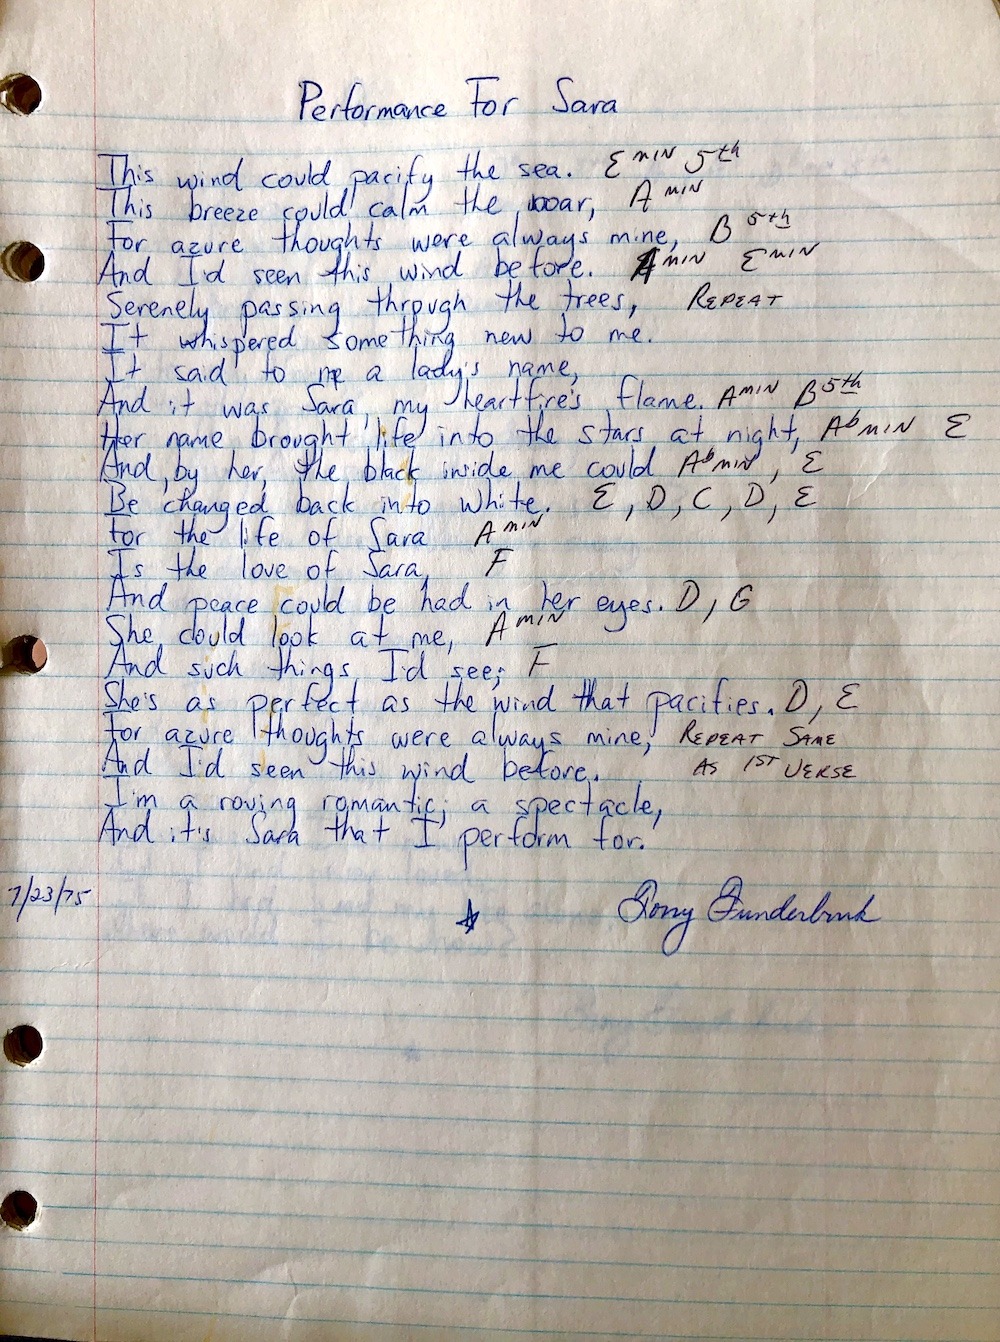 Performance For Sara
This wind could pacify the sea. EMIN 5th
This breeze could calm the boar, AMIN
For azure thoughts were always mine, B 5th
And I'd seen this wind before. AMIN EMIN
Serenely passing through the trees, REPEAT
It whispered something new to me.
It said to me a lady's name,
And it was Sara, my heartfire's flame. AMIN B5th
Her name brought life into the stars at night, AbMIN E
And, by her, the black inside me could AbMIN, E
Be changed back into white. E, D, C, D, E
For the life of Sara AMIN
Is the love of Sara, F
And peace could be had in her eyes. D, G
She could look at me, AMIN
And such things I'd see; F
She's as perfect as the wind that pacifies. D, E
For azure thoughts were always mine, REPEAT SAME
And I'd seen this wind before. AS 1ST VERSE
I'm a roving romantic; a spectacle,
And it's Sara that I perform for.
7/23/75 Tony Funderburk